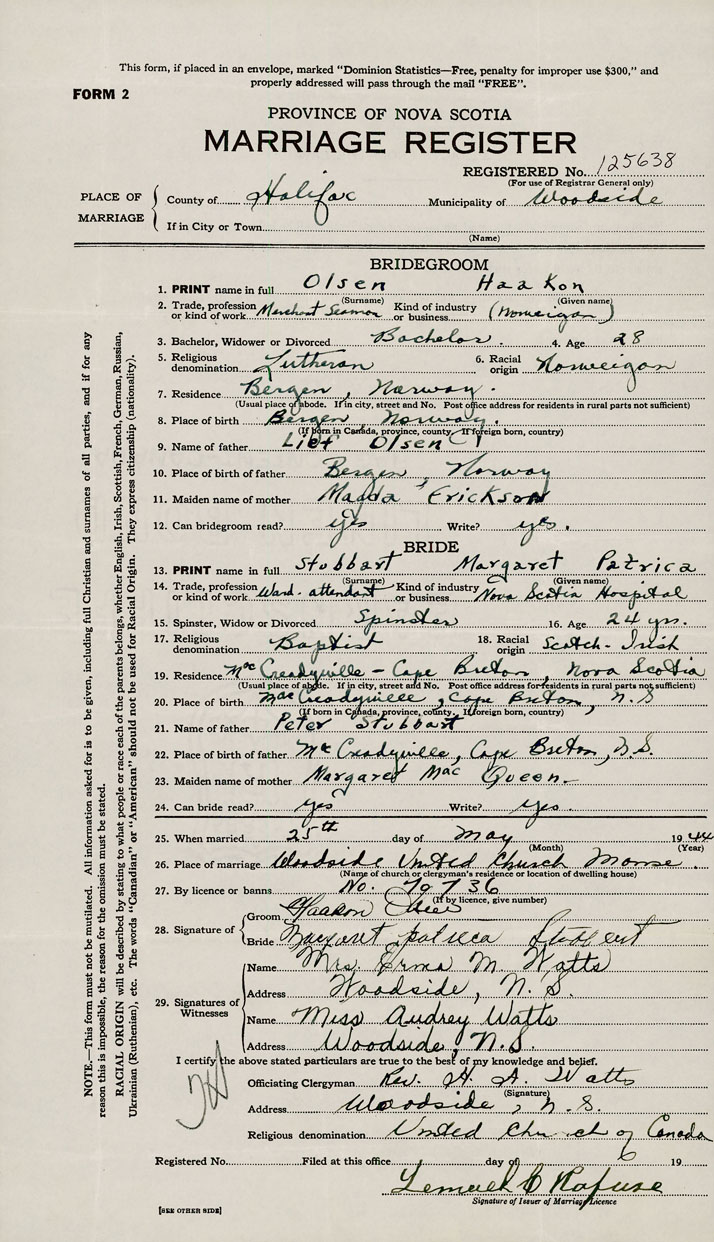 This form, if placed in an envelope, marked "Dominion Statistics—Free, penalty for improper use $300," and
properly addressed will pass through the mail "FREE".
FORM 2
PROVINCE OF NOVA SCOTIA
MARRIAGE REGISTER
REGISTERED No. 125638
(For use of Registrar General only)
PLACE OF MARRIAGE
County of Halifax Municipality of Woodside
If in City or Town
(Name)
BRIDEGROOM
1. PRINT name in full Olsen Haakon
(Surname) (Given name)
2. Trade, profession or kind of work Merchant Seaman Kind of industry or business (Norweigan)
3. Bachelor, Widower or Divorced Bachelor. 4. Age 28
5. Religious denomination Lutheran 6. Racial origin Norweigan
7. Residence Bergen, Norway.
(Usual place of abode. If in city, street and No. Post office address for residents in rural parts not sufficient)
8. Place of birth Bergen Norway.
(If born in Canada, province, county. If foreign born, country)
9. Name of father Olsen
10. Place of birth of father Bergen, Norway
11. Maiden name of mother Magda Erickson
12. Can bridegroom read? yes Write? yes.
BRIDE
13. PRINT name in full Stubbart Margaret Patrica
(Surname) (Given name)
14. Trade, profession or kind of work Ward. attendant Kind of industry or business Nova Scotia Hospital
15. Spinster, Widow or Divorced Spinster 16. Age 24 yrs.
17. Religious denomination Baptist 18. Racial origin Scotch-Irish
19. Residence McCreadyville - Cape Breton, Nova Scotia
(Usual place of abode. If in city, street and No. Post office address for residents in rural parts not sufficient)
20. Place of birth MacCreadyville, Cape Breton, N.S
(If born in Canada, province, county. If foreign born, country)
21. Name of father Peter Stubbart
22. Place of birth of father McCreadyville, Cape Breton, N.S.
23. Maiden name of mother Margaret Mac Queen.
24. Can bride read? yes Write? yes.
25. When married 25th day of May 1944
(Month) (Year)
26. Place of marriage Woodside United Church Manse.
(Name of church or clergyman's residence or location of dwelling house)
27. By licence or banns No. 79736
(If by licence, give number)
28. Signature of
Groom Haakon
Bride Margaret Patrica
29. Signatures of Witnesses
Name Mrs. Erma M. Watts
Address Woodside, N.S.
Name Miss Audrey Watts
Address Woodside, N.S.
I certify the above stated particulars are true to the best of my knowledge and belief.
Officiating Clergyman Rev. H. A. Watts
(Signature)
Address Woodside, N.S.
Religious denomination United Church of Canada
Registered No. Filed at this office day of 19
Lemuel C Rafuse
Signature of Issuer of Marriage Licence
[SEE OTHER SIDE]
NOTE.—This form must not be mutilated. All information asked for is to be given, including full Christian and surnames of all parties, and if for any
reason this is impossible, the reason for the omission must be stated.
RACIAL ORIGIN will be described by stating to what people or race each of the parents belongs, whether English, Irish, Scottish, French, German, Russian,
Ukrainian (Ruthenian), etc. The words "Canadian" or "American" should not be used for Racial Origin. They express citizenship (nationality).